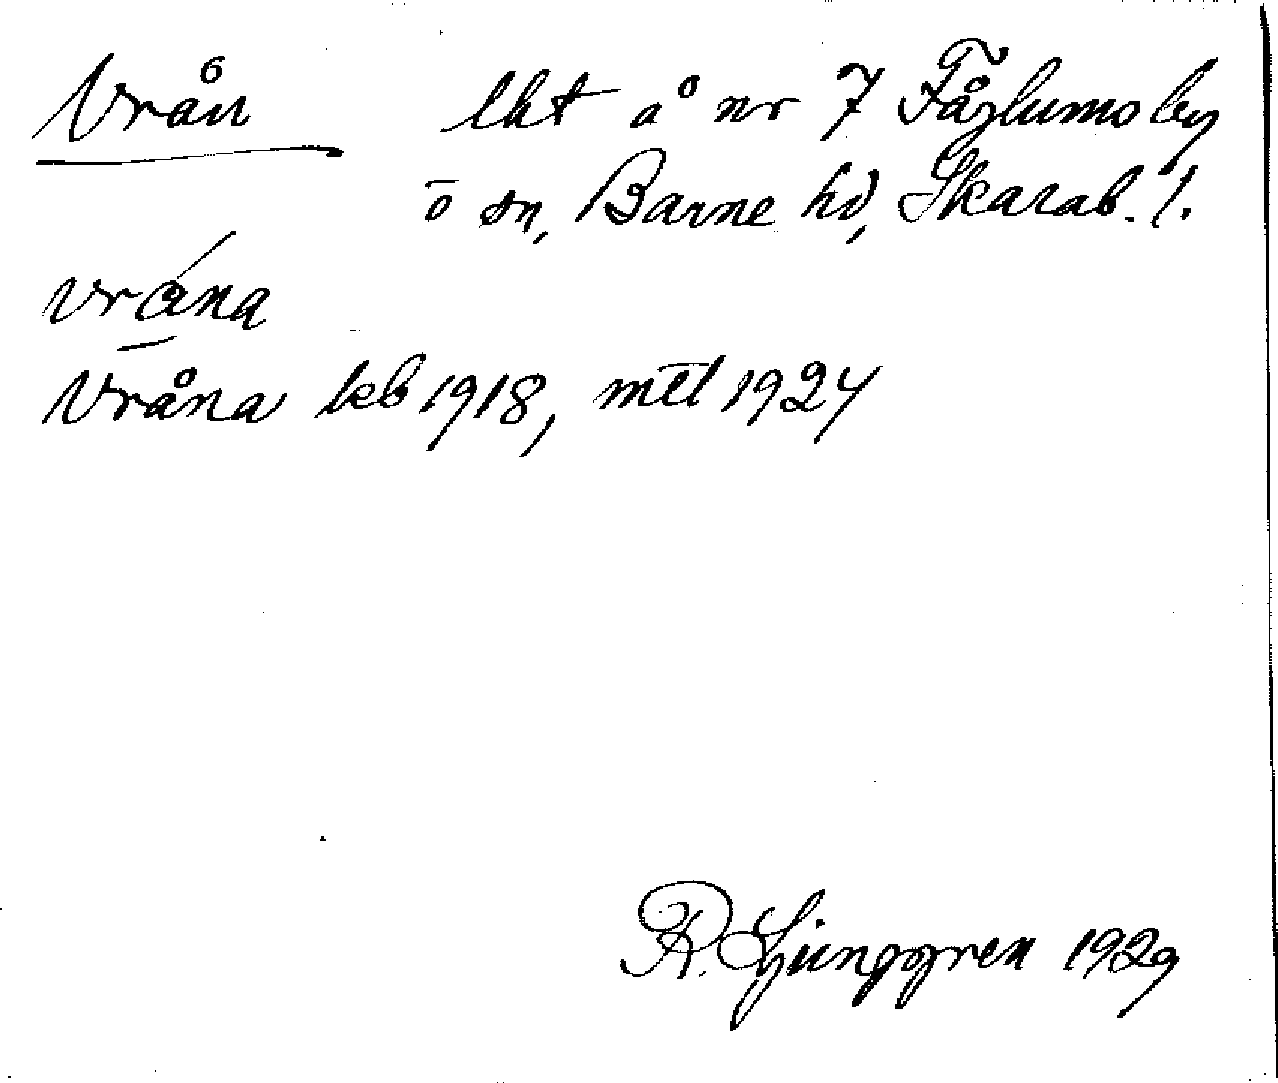 Vrån lht å nr 7 Fåglums by
o sn, Barne hd, Skarab. l.
vråna
Vråna kb 1918, mtl 1924
R. Ljunggren 1929